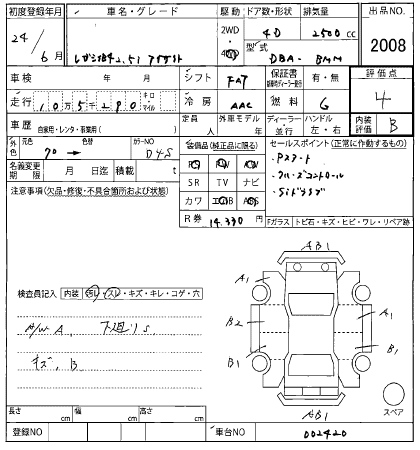 初度登録年月 車名・グレード 駆動 ドア数・形状 排気量 出品NO.
24年 6月 2WD・4WD 4D 2500cc
型式 DBA-BMM 2008
車検 年 月 シフト FAT 保証書 有・無 評価点
走行 10万5千290 キロ・マイル 冷房 AAC 燃料 G 4
車歴 自家用・レンタ・事業用( ) 定員 人 外車モデル 年 ディーラー・並行 ハンドル 左・右 内装評価 B
外色 元色 色替 カラーNO 装備品(純正品に限る) セールスポイント(正常に動作するもの)
D4S PS PW
名義変更期限 月 日迄 積載 t SR TV ナビ
注意事項(欠品・修復・不具合箇所および状態) カワ エアB ABS
R券 14,330 Fガラス トビ石・キズ・ヒビ・ワレ・リペア跡
AB1
A1
A1
B2
B1
B1
検査員記入 内装 ヨゴレ・スレ・キズ・キレ・コゲ・穴
A/W A, 下廻りS
キズ, B
AB1
スペア
長さ cm 幅 cm 高さ cm
登録NO 車台NO 002420